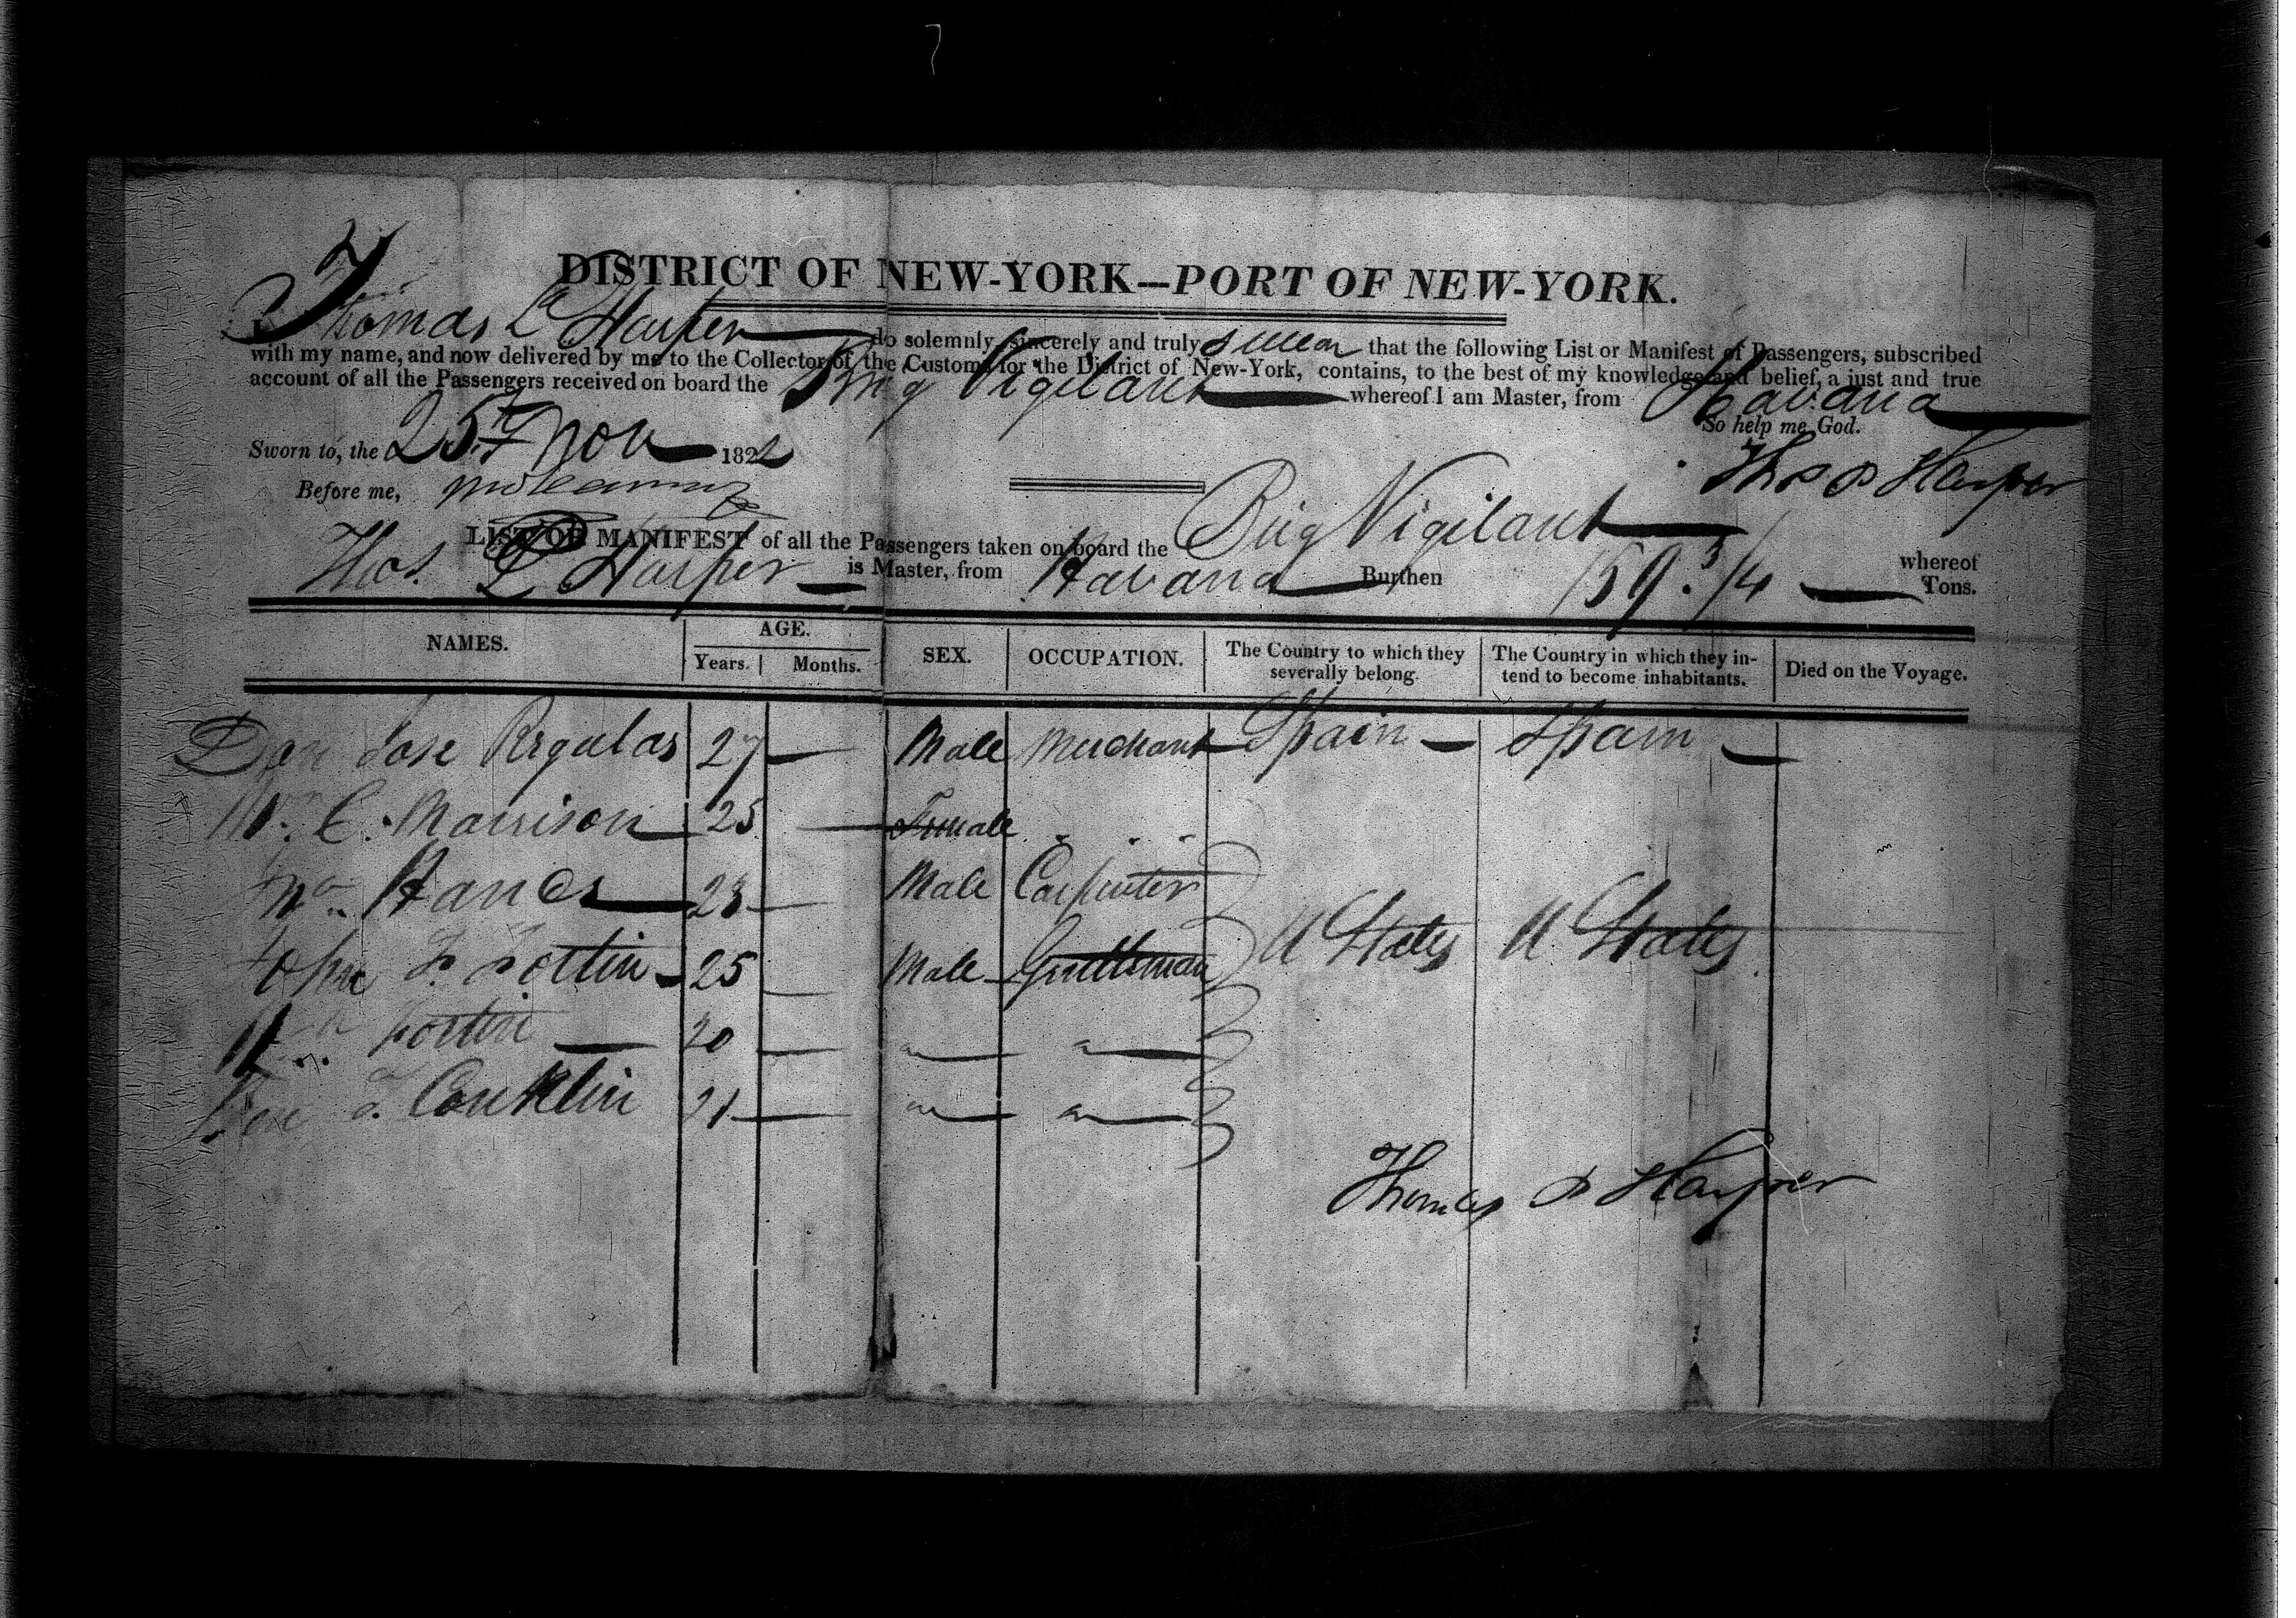 DISTRICT OF NEW-YORK—PORT OF NEW-YORK.
I, Thomas L Harper do solemnly, sincerely and truly swear that the following List or Manifest of Passengers, subscribed
with my name, and now delivered by me to the Collector of the Customs for the District of New-York, contains, to the best of my knowledge and belief, a just and true
account of all the Passengers received on board the Brig Vigilant whereof I am Master, from Havana
So help me God.
Sworn to, the 25th Nov 1822
Thos D Harper
Before me,
LIST OR MANIFEST of all the Passengers taken on board the Brig Vigilant whereof
Thos. L Harper is Master, from Havana Burthen 159.3/4 Tons.
NAMES. AGE. SEX. OCCUPATION. The Country to which they severally belong. The Country in which they intend to become inhabitants. Died on the Voyage.
Years. Months.
Don Jose Regulas 27 — Male Merchant Spain — Spain —
C. Morrison 25 — Female
Hanes 23 — Male Carpenter
John 25 — Male Gentleman U States U States
20 —
Conklin 21 —
Thomas D Harper